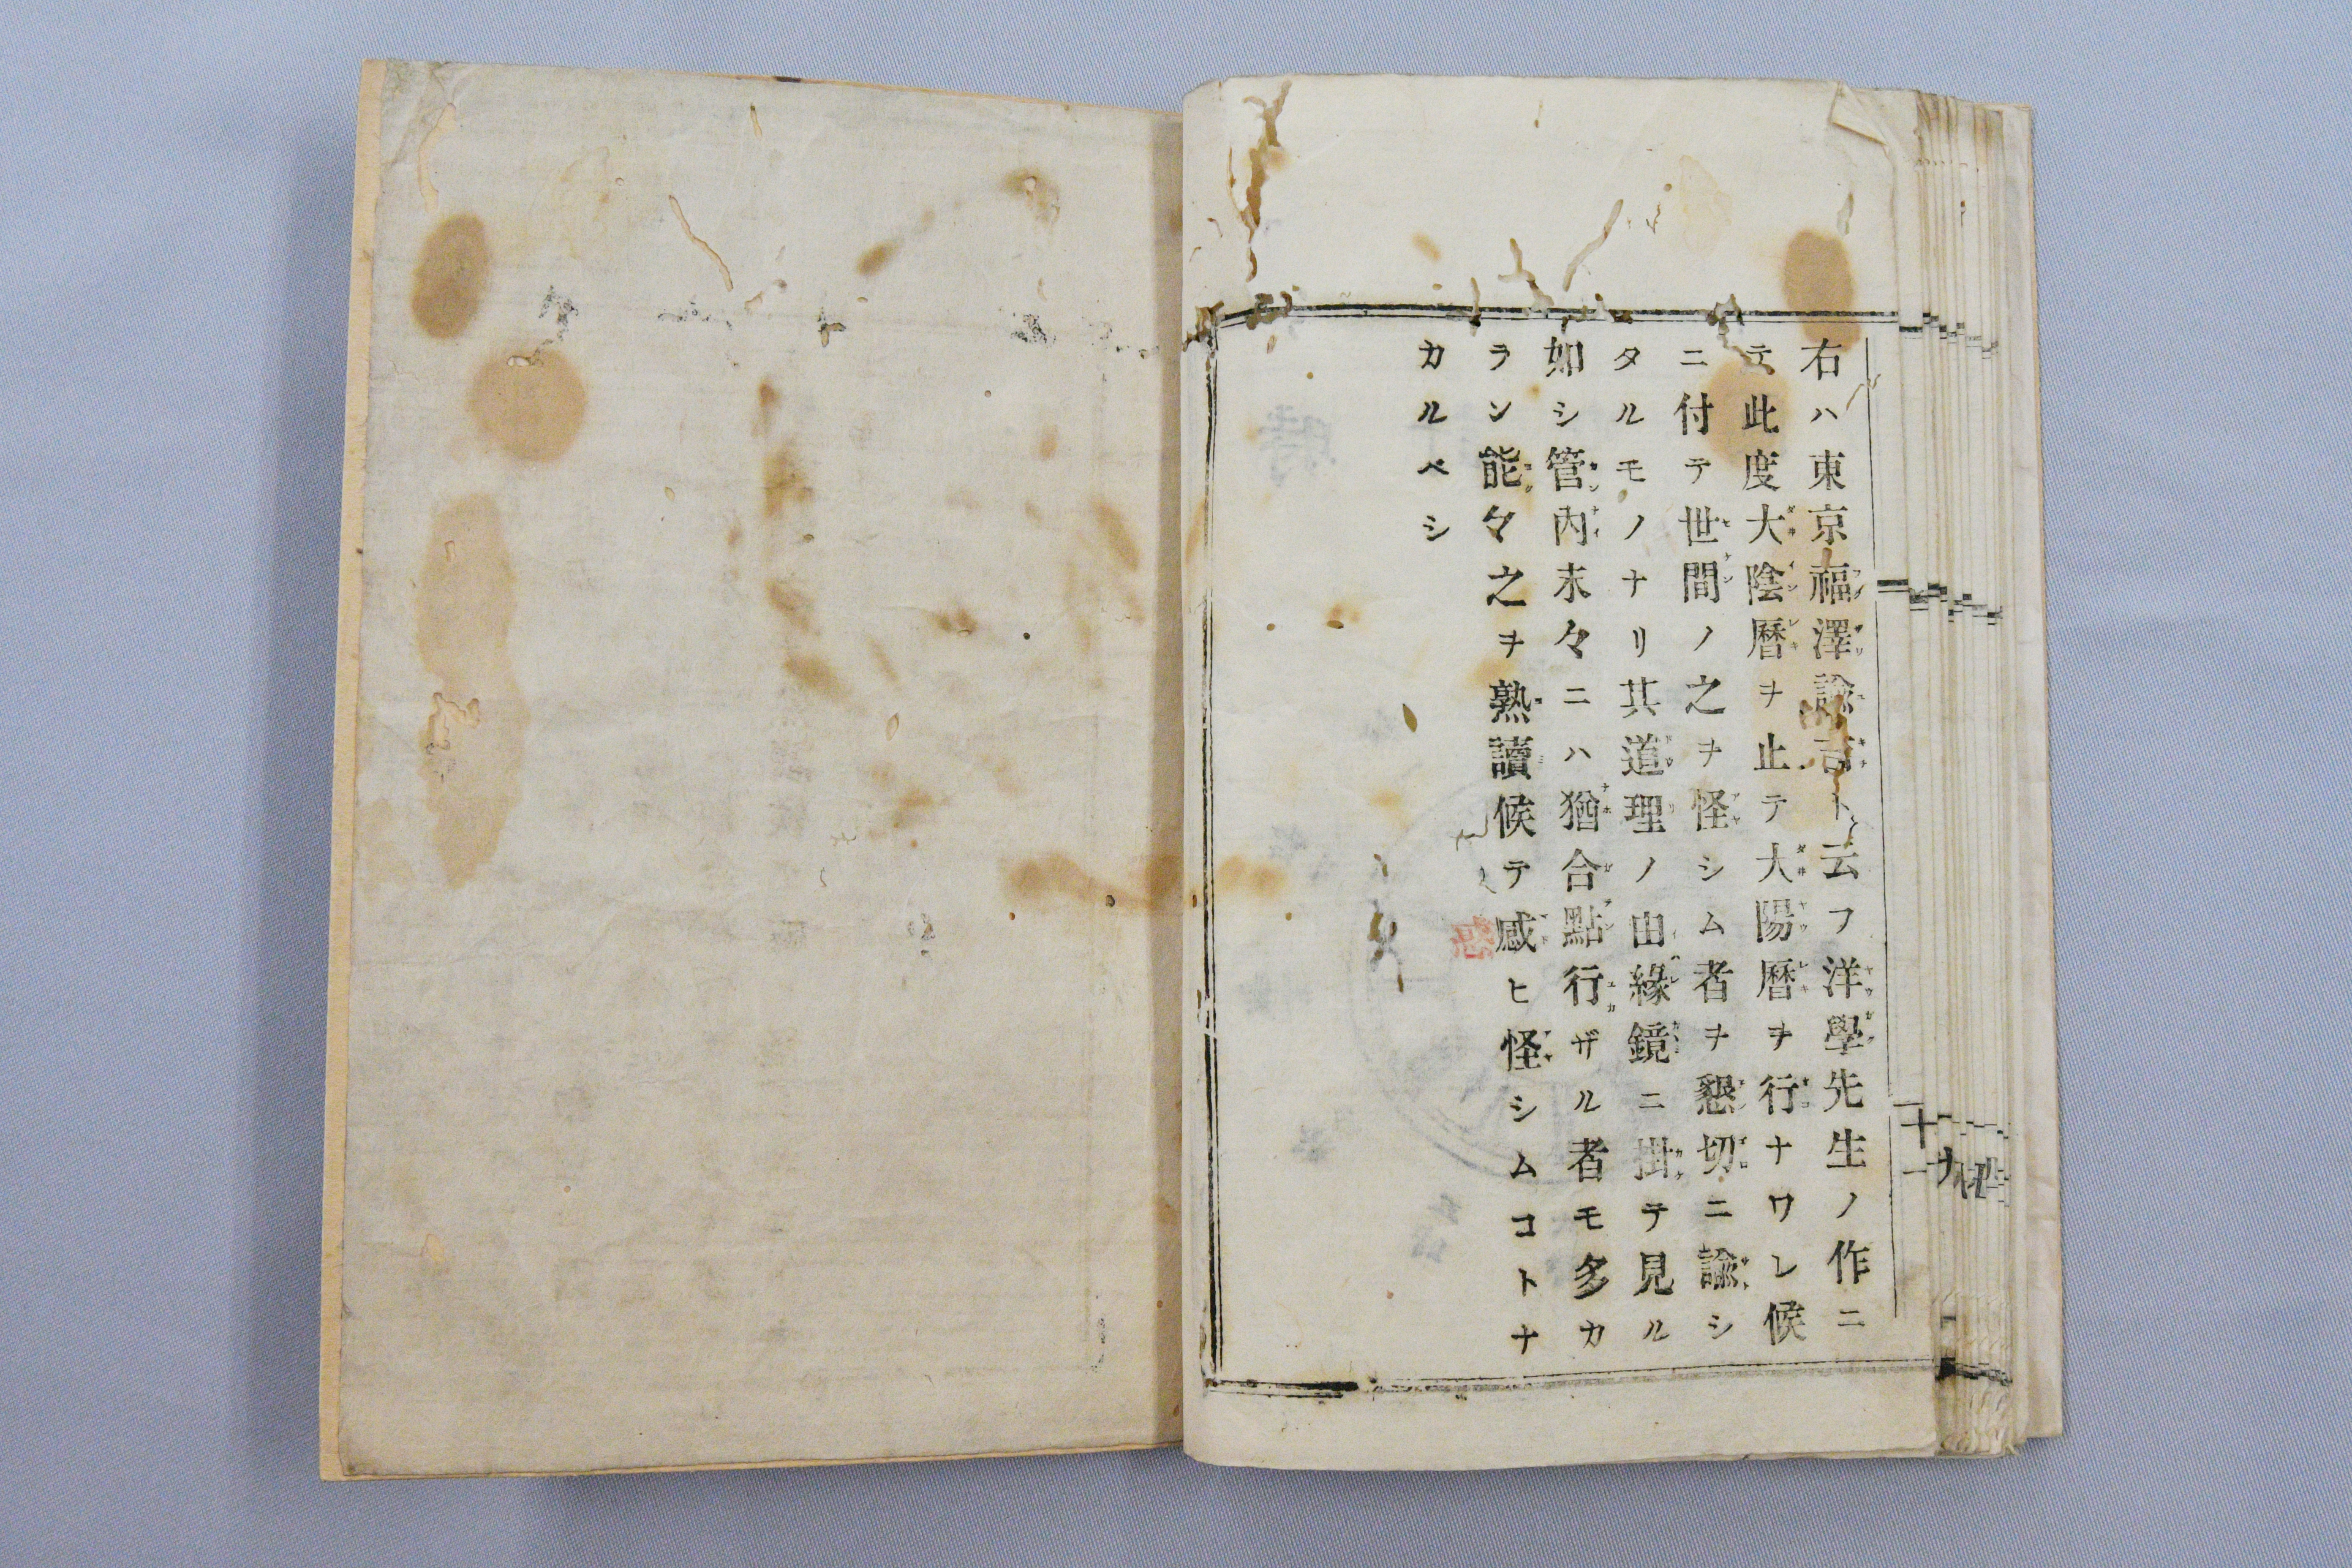 右ハ東京福澤諭吉ト云フ洋學先生ノ作ニ
テ此度大陰暦ヲ止テ大陽暦ヲ行ナワレ候
ニ付テ世間ノ之ヲ怪シム者ヲ懇切ニ諭シ
タルモノナリ其道理ノ由緣鏡ニ掛テ見ル
如シ管內末々ニハ猶合點行ザル者モ多カ
ラン能々之ヲ熟讀候テ感ヒ怪シムコトナ
カルベシ
十一